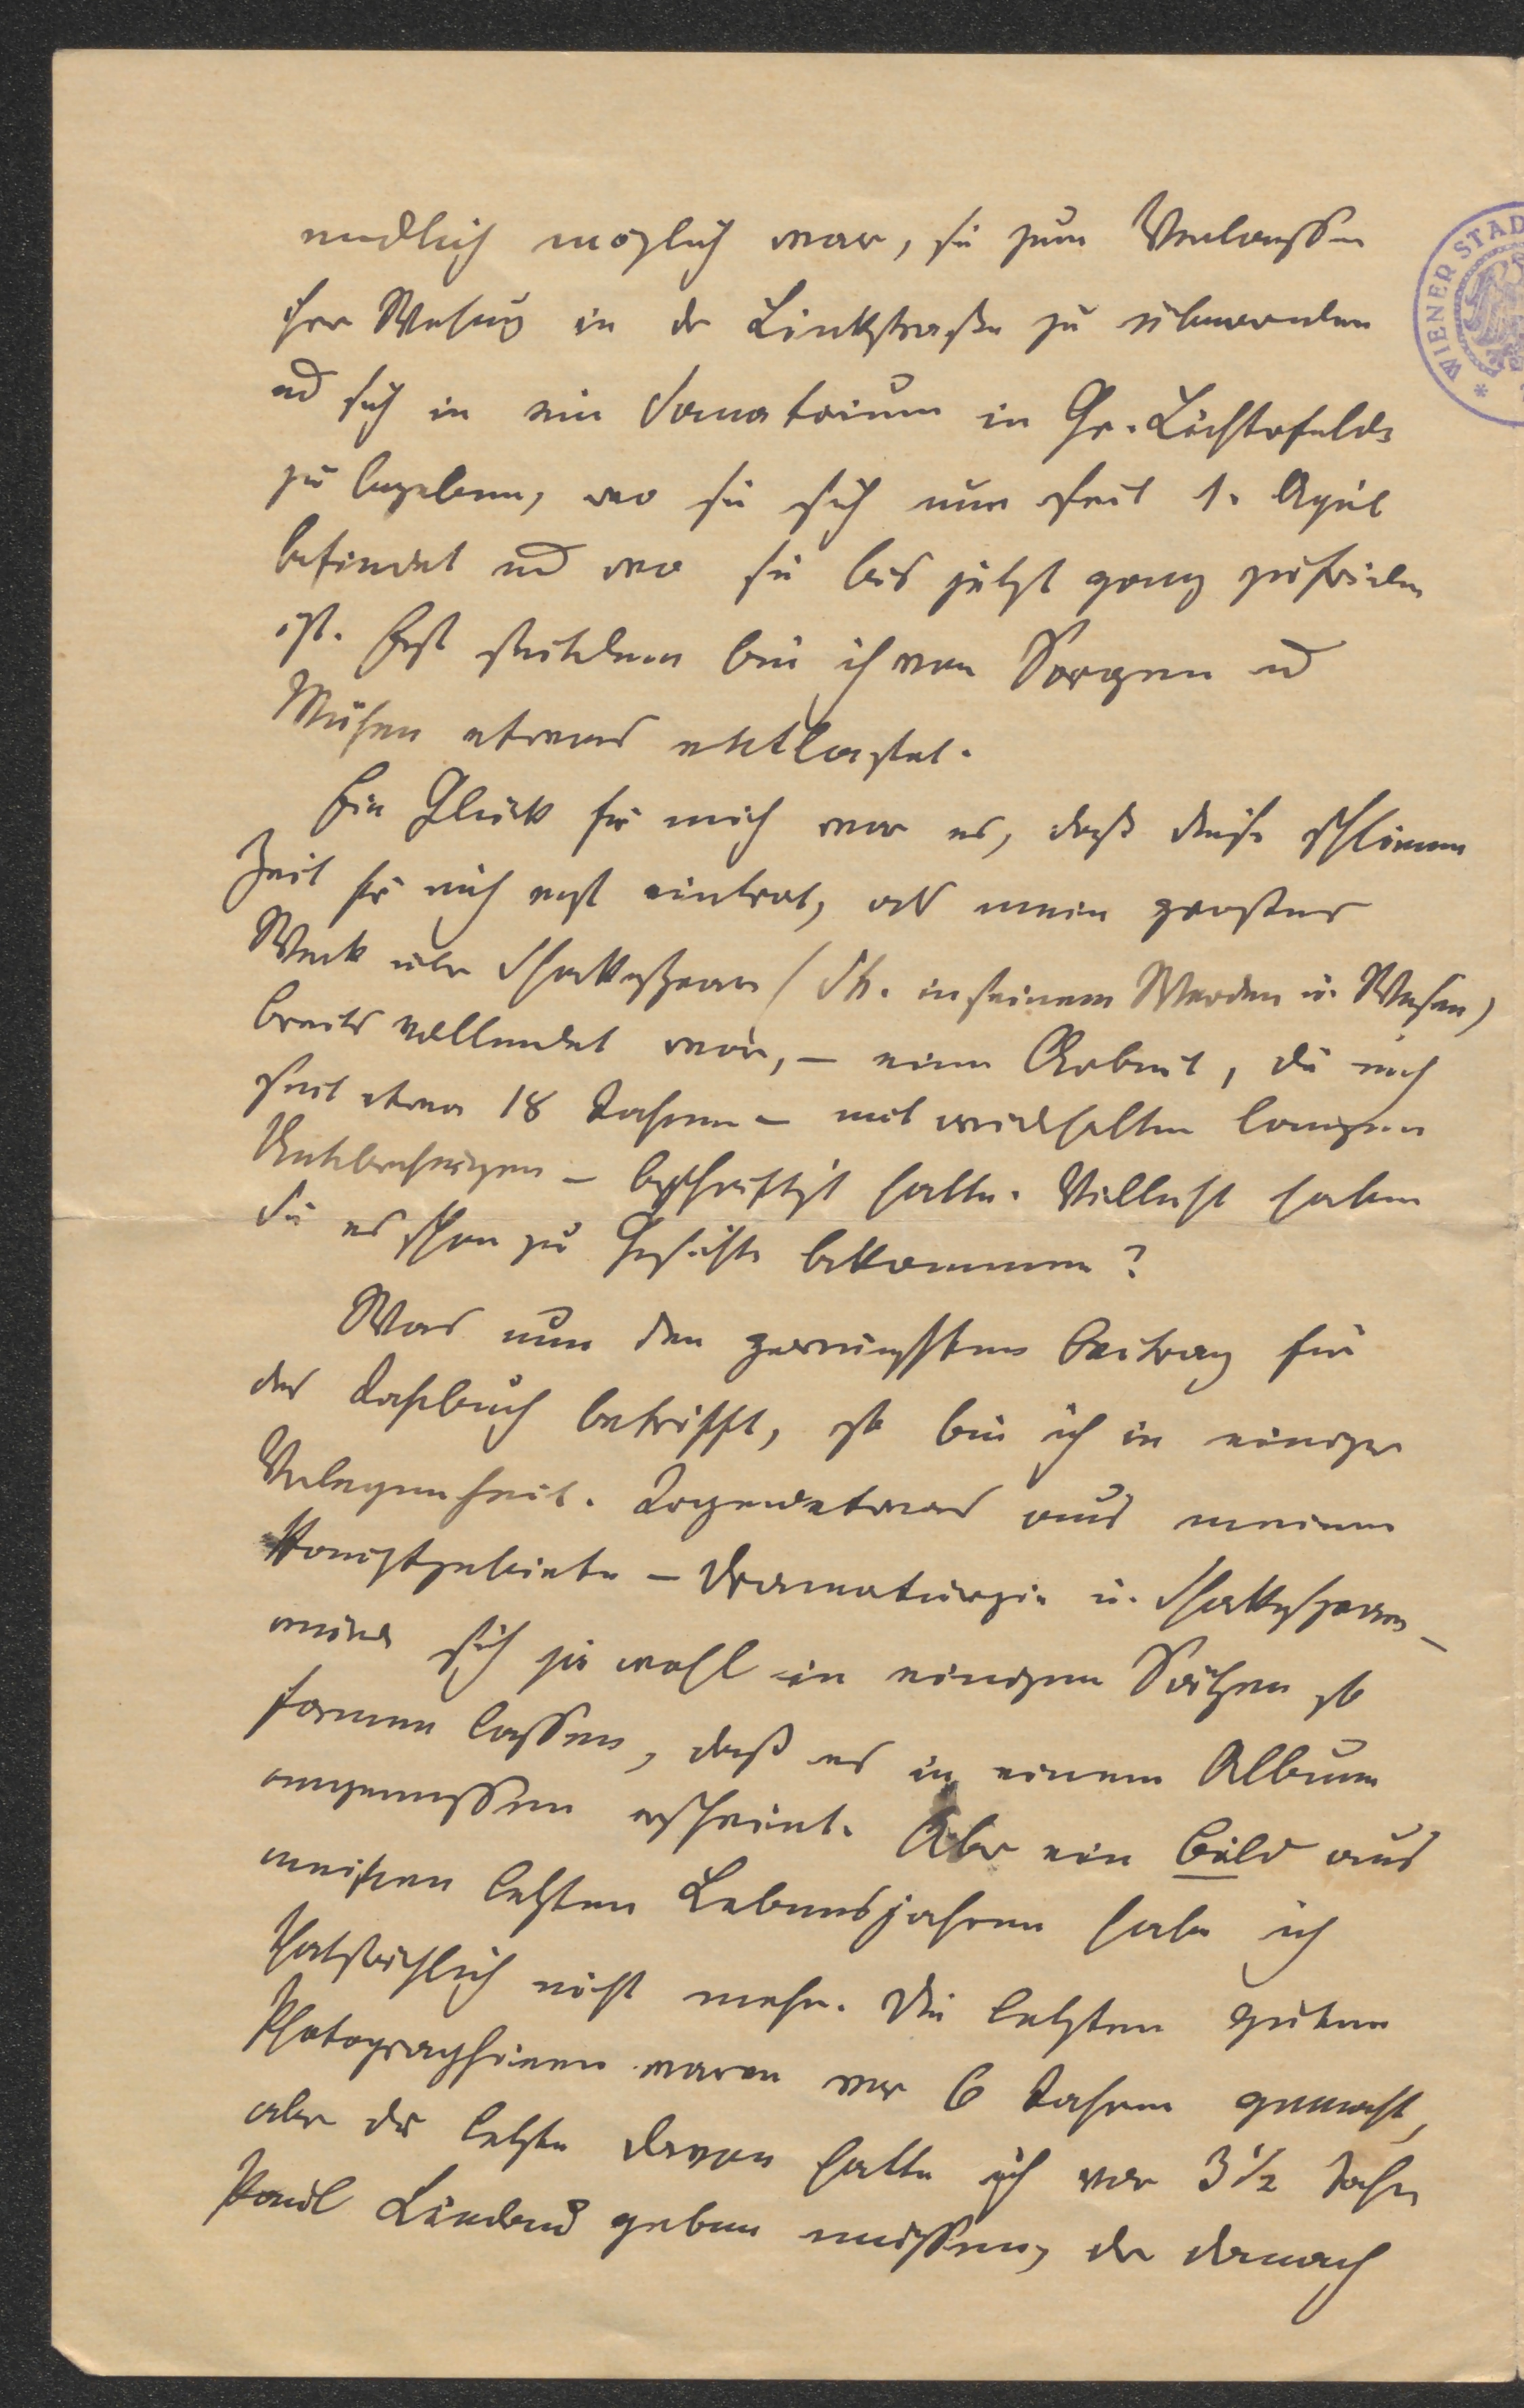 endlich möglich war, sie zum Verlassen
ihrer Wohnung in der Linkstraße zu
und sich in ein Sanatorium in Gr. Lichterfelde
zu begeben, wo sie sich nun seit 1. April
befindet und wo sie bis jetzt ganz zufrieden
ist. Erst seitdem bin ich von Sorgen und
Mühen etwas entlastet.
Ein Glück für mich war es, daß diese schlimme
Zeit für mich erst eintrat, als mein großes
Werk über Shakespeare (Sh. in seinem Werden u. Wesen)
bereits vollendet war, – eine Arbeit, die mich
seit etwa 18 Jahren – mit wiederholten langen
Unterbrechungen – beschäftigt hatte. Vielleicht haben
Sie es schon zu Gesichte bekommen?
Was nun den gewünschten Beitrag für
das Jahrbuch betrifft, so bin ich in einiger
Verlegenheit. Irgend etwas aus meinem
Hauptgebiete – Dramaturgie u. Shakespeare –
wird sich ja wohl in einigen Sätzen so
formen lassen, daß es in einem Album
angemessen erscheint. Aber ein Bild aus
meinen letzten Lebensjahren habe ich
thatsächlich nicht mehr. Die letzten guten
Photographieen waren vor 6 Jahren gemacht,
aber die letzte davon hatte ich vor 3 1/2 Jahren
Paul Lindau geben müssen, der danach
WIENER STAD